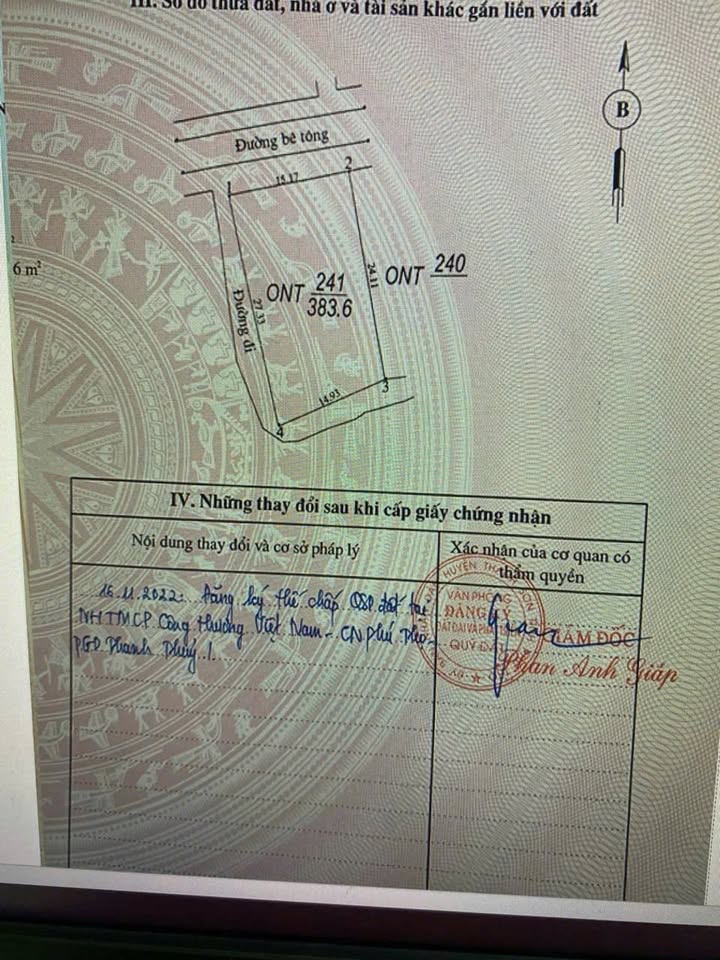 III. Sơ đồ thửa đất, nhà ở và tài sản khác gắn liền với đất
B
Đường bê tông
1
2
15.17
6 m²
ONT 241
383.6
24.11
ONT 240
27.33
Đường đi
14.93
3
4
IV. Những thay đổi sau khi cấp giấy chứng nhận
Nội dung thay đổi và cơ sở pháp lý
Xác nhận của cơ quan có
thẩm quyền
16.11.2022: Đăng ký thế chấp QSD đất tại
NHTMCP Công thương Việt Nam - CN Phú Thọ -
PGD Thanh
HUYỆN
VĂN PHÒNG
ĐĂNG KÝ
ĐẤT ĐAI VÀ
QUỸ ĐẤT
GIÁM ĐỐC
Phan Anh Giáp